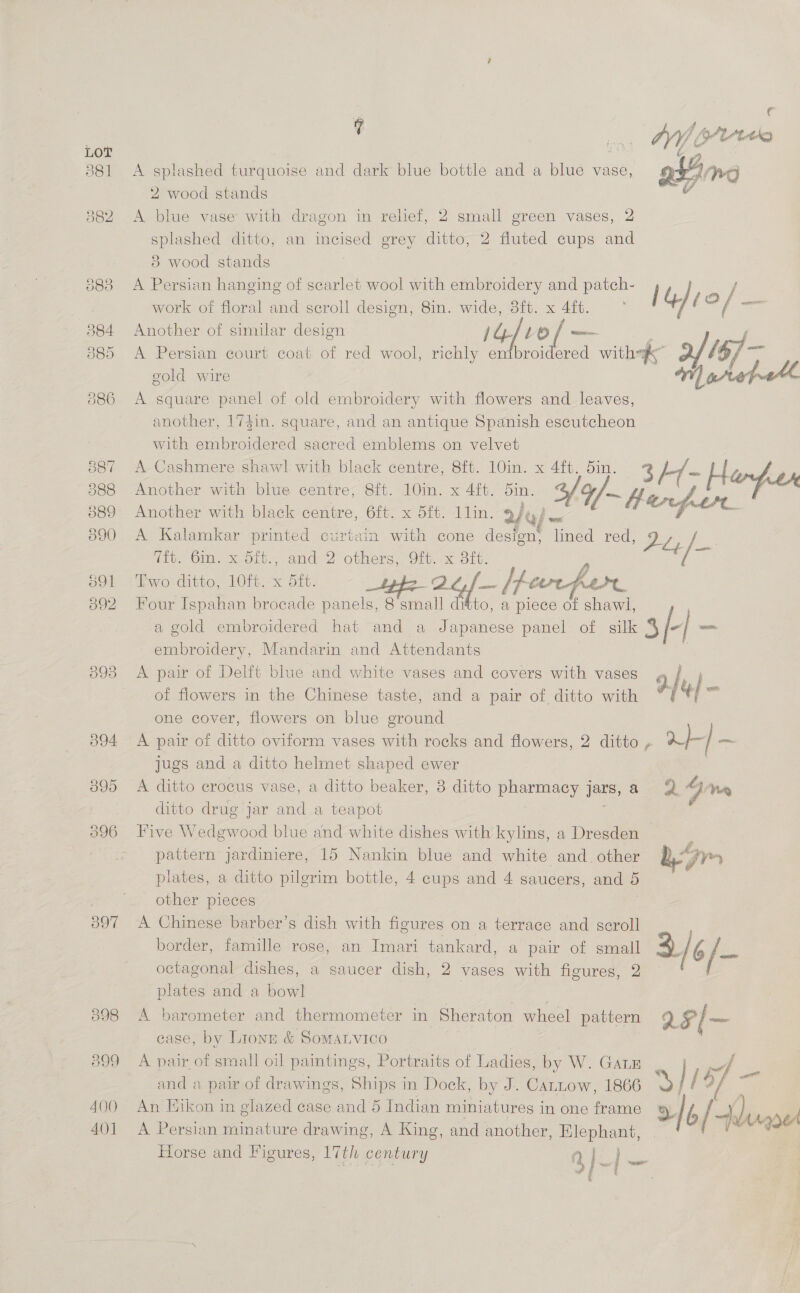 7
LOT
381 A splashed turquoise and dark blue bottle and a blue vase,
2 wood stands
382 A blue vase with dragon in relief, 2 small green vases, 2
splashed ditto, an incised grey ditto, 2 fluted cups and
3 wood stands
383 A Persian hanging of scarlet wool with embroidery and patch-
work of floral and scroll design, 8in. wide, 3ft. x 4ft. 14/10/—
384 Another of similar design 14/10/—
385 A Persian court coat of red wool, richly embroidered with 2/15/-
gold wire
386 A square panel of old embroidery with flowers and leaves,
another, 17½in. square, and an antique Spanish escutcheon
with embroidered sacred emblems on velvet
387 A Cashmere shawl with black centre, 8ft. 10in. x 4ft. 5in. Harper
388 Another with blue centre, 8ft. 10in. x 4ft. 5in. Harper
389 Another with black centre, 6ft. x 5ft. 11in. 2/4/-
390 A Kalamkar printed curtain with cone design, lined red,
7ft. 6in. x 5ft., and 2 others, 9ft. x 3ft.
391 Two ditto, 10ft. x 5ft. Harper
392 Four Ispahan brocade panels, 8 small ditto, a piece of shawl,
a gold embroidered hat and a Japanese panel of silk 3/-/-
embroidery, Mandarin and Attendants
393 A pair of Delft blue and white vases and covers with vases
of flowers in the Chinese taste, and a pair of ditto with 2/4/-
one cover, flowers on blue ground
394 A pair of ditto oviform vases with rocks and flowers, 2 ditto, 2/-/-
jugs and a ditto helmet shaped ewer
395 A ditto crocus vase, a ditto beaker, 3 ditto pharmacy jars, a 2 gns
ditto drug jar and a teapot
396 Five Wedgwood blue and white dishes with kylins, a Dresden
pattern jardiniere, 15 Nankin blue and white and other
plates, a ditto pilgrim bottle, 4 cups and 4 saucers, and 5
other pieces
397 A Chinese barber's dish with figures on a terrace and scroll
border, famille rose, an Imari tankard, a pair of small 3/6/-
octagonal dishes, a saucer dish, 2 vases with figures, 2
plates and a bowl
398 A barometer and thermometer in Sheraton wheel pattern 28/-
case, by LIONE & SOMALVICO
399 A pair of small oil paintings, Portraits of Ladies, by W. GALE
and a pair of drawings, Ships in Dock, by J. CALLOW, 1866 3/15/-
400 An Eikon in glazed case and 5 Indian miniatures in one frame
401 A Persian minature drawing, A King, and another, Elephant,
Horse and Figures, 17th century 2/-/-